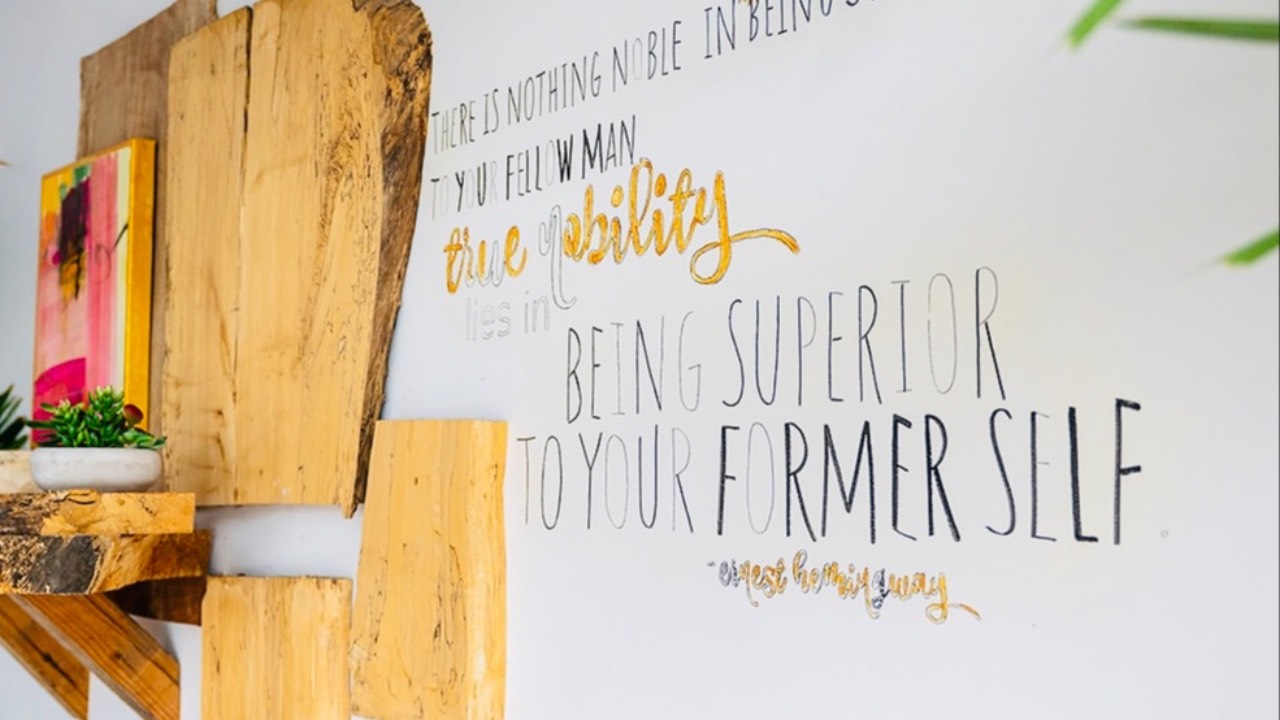 THERE IS NOTHING NOBLE IN BEING
TO YOUR FELLOW MAN
true nobility
lies in
BEING SUPERIOR
TO YOUR FORMER SELF.
-ernest hemingway